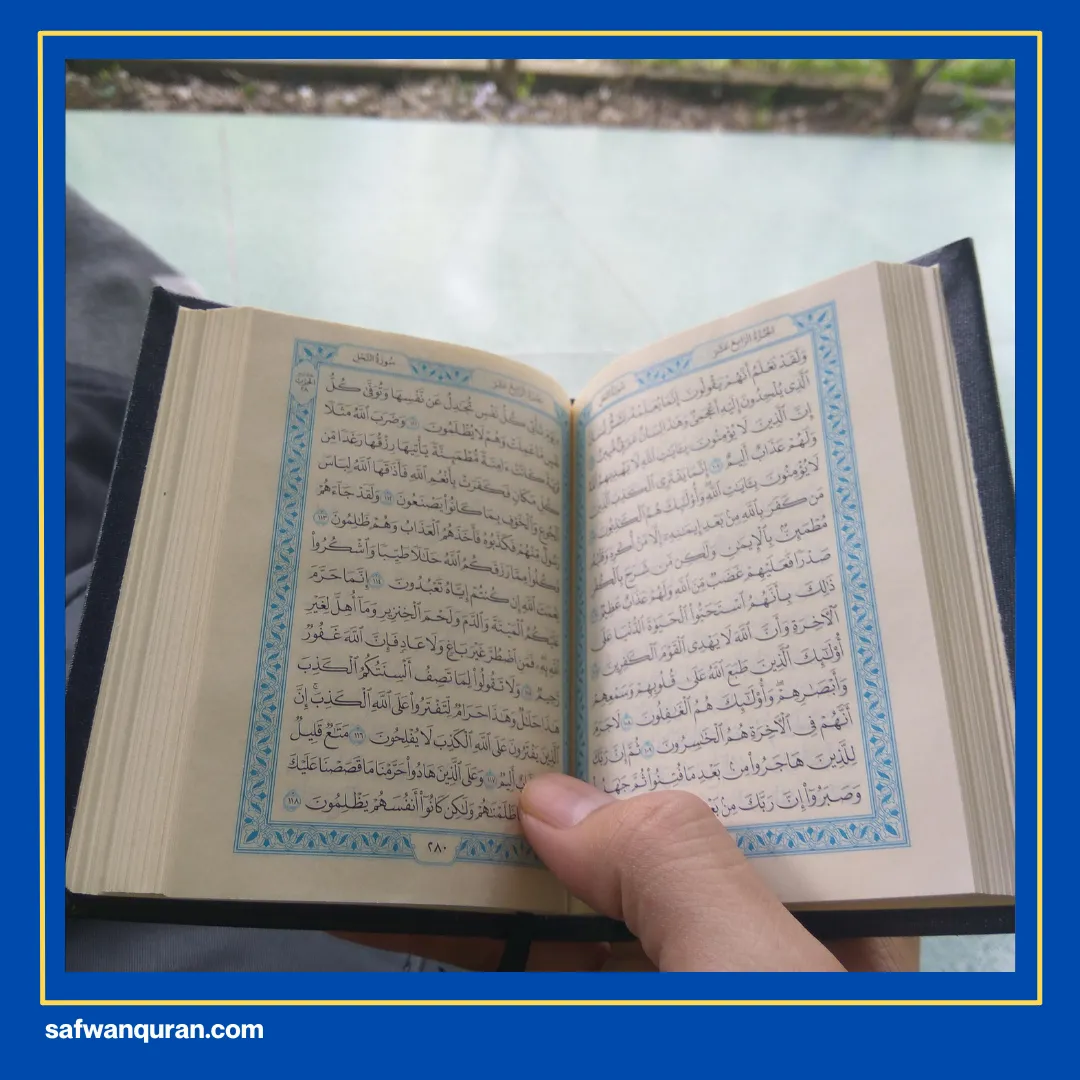 الجُزْءُ الرَّابِعُ عَشَرَ
وَلَقَدْ نَعْلَمُ أَنَّهُمْ يَقُولُونَ إِنَّمَا يُعَلِّمُهُۥ بَشَرٌ لِّسَانُ
ٱلَّذِى يُلْحِدُونَ إِلَيْهِ أَعْجَمِىٌّ وَهَٰذَا لِسَانٌ عَرَبِىٌّ مُّبِينٌ
إِنَّ ٱلَّذِينَ لَا يُؤْمِنُونَ بِـَٔايَٰتِ ٱللَّهِ لَا يَهْدِيهِمُ ٱللَّهُ
وَلَهُمْ عَذَابٌ أَلِيمٌ ١٠٤ إِنَّمَا يَفْتَرِى ٱلْكَذِبَ ٱلَّذِينَ
لَا يُؤْمِنُونَ بِـَٔايَٰتِ ٱللَّهِ وَأُو۟لَٰٓئِكَ هُمُ ٱلْكَٰذِبُونَ
مَن كَفَرَ بِٱللَّهِ مِنۢ بَعْدِ إِيمَٰنِهِۦٓ إِلَّا مَنْ أُكْرِهَ وَقَلْبُهُۥ
مُطْمَئِنٌّۢ بِٱلْإِيمَٰنِ وَلَٰكِن مَّن شَرَحَ بِٱلْكُفْرِ
صَدْرًا فَعَلَيْهِمْ غَضَبٌ مِّنَ ٱللَّهِ وَلَهُمْ عَذَابٌ عَظِيمٌ
ذَٰلِكَ بِأَنَّهُمُ ٱسْتَحَبُّوا۟ ٱلْحَيَوٰةَ ٱلدُّنْيَا عَلَى
ٱلْـَٔاخِرَةِ وَأَنَّ ٱللَّهَ لَا يَهْدِى ٱلْقَوْمَ ٱلْكَٰفِرِينَ
أُو۟لَٰٓئِكَ ٱلَّذِينَ طَبَعَ ٱللَّهُ عَلَىٰ قُلُوبِهِمْ وَسَمْعِهِمْ
وَأَبْصَٰرِهِمْ ۖ وَأُو۟لَٰٓئِكَ هُمُ ٱلْغَٰفِلُونَ ١٠٨ لَا جَرَمَ
أَنَّهُمْ فِى ٱلْـَٔاخِرَةِ هُمُ ٱلْخَٰسِرُونَ ١٠٩ ثُمَّ إِنَّ رَبَّكَ
لِلَّذِينَ هَاجَرُوا۟ مِنۢ بَعْدِ مَا فُتِنُوا۟ ثُمَّ جَٰهَدُوا۟
وَصَبَرُوٓا۟ إِنَّ رَبَّكَ مِنۢ
سُورَةُ النَّحْلِ الجُزْءُ الرَّابِعُ عَشَرَ
يَوْمَ تَأْتِى كُلُّ نَفْسٍ تُجَٰدِلُ عَن نَّفْسِهَا وَتُوَفَّىٰ كُلُّ
نَفْسٍ مَّا عَمِلَتْ وَهُمْ لَا يُظْلَمُونَ ١١١ وَضَرَبَ ٱللَّهُ مَثَلًا
قَرْيَةً كَانَتْ ءَامِنَةً مُّطْمَئِنَّةً يَأْتِيهَا رِزْقُهَا رَغَدًا مِّن
كُلِّ مَكَانٍ فَكَفَرَتْ بِأَنْعُمِ ٱللَّهِ فَأَذَٰقَهَا ٱللَّهُ لِبَاسَ
ٱلْجُوعِ وَٱلْخَوْفِ بِمَا كَانُوا۟ يَصْنَعُونَ ١١٢ وَلَقَدْ جَآءَهُمْ
رَسُولٌ مِّنْهُمْ فَكَذَّبُوهُ فَأَخَذَهُمُ ٱلْعَذَابُ وَهُمْ ظَٰلِمُونَ ١١٣
فَكُلُوا۟ مِمَّا رَزَقَكُمُ ٱللَّهُ حَلَٰلًا طَيِّبًا وَٱشْكُرُوا۟
نِعْمَتَ ٱللَّهِ إِن كُنتُمْ إِيَّاهُ تَعْبُدُونَ ١١٤ إِنَّمَا حَرَّمَ
عَلَيْكُمُ ٱلْمَيْتَةَ وَٱلدَّمَ وَلَحْمَ ٱلْخِنزِيرِ وَمَآ أُهِلَّ لِغَيْرِ
ٱللَّهِ بِهِۦ ۖ فَمَنِ ٱضْطُرَّ غَيْرَ بَاغٍ وَلَا عَادٍ فَإِنَّ ٱللَّهَ غَفُورٌ
رَّحِيمٌ ١١٥ وَلَا تَقُولُوا۟ لِمَا تَصِفُ أَلْسِنَتُكُمُ ٱلْكَذِبَ
هَٰذَا حَلَٰلٌ وَهَٰذَا حَرَامٌ لِّتَفْتَرُوا۟ عَلَى ٱللَّهِ ٱلْكَذِبَ ۚ إِنَّ
ٱلَّذِينَ يَفْتَرُونَ عَلَى ٱللَّهِ ٱلْكَذِبَ لَا يُفْلِحُونَ ١١٦ مَتَٰعٌ قَلِيلٌ
أَلِيمٌ ١١٧ وَعَلَى ٱلَّذِينَ هَادُوا۟ حَرَّمْنَا مَا قَصَصْنَا عَلَيْكَ
ظَلَمْنَٰهُمْ وَلَٰكِن كَانُوٓا۟ أَنفُسَهُمْ يَظْلِمُونَ ١١٨
٢٨٠
safwanquran.com